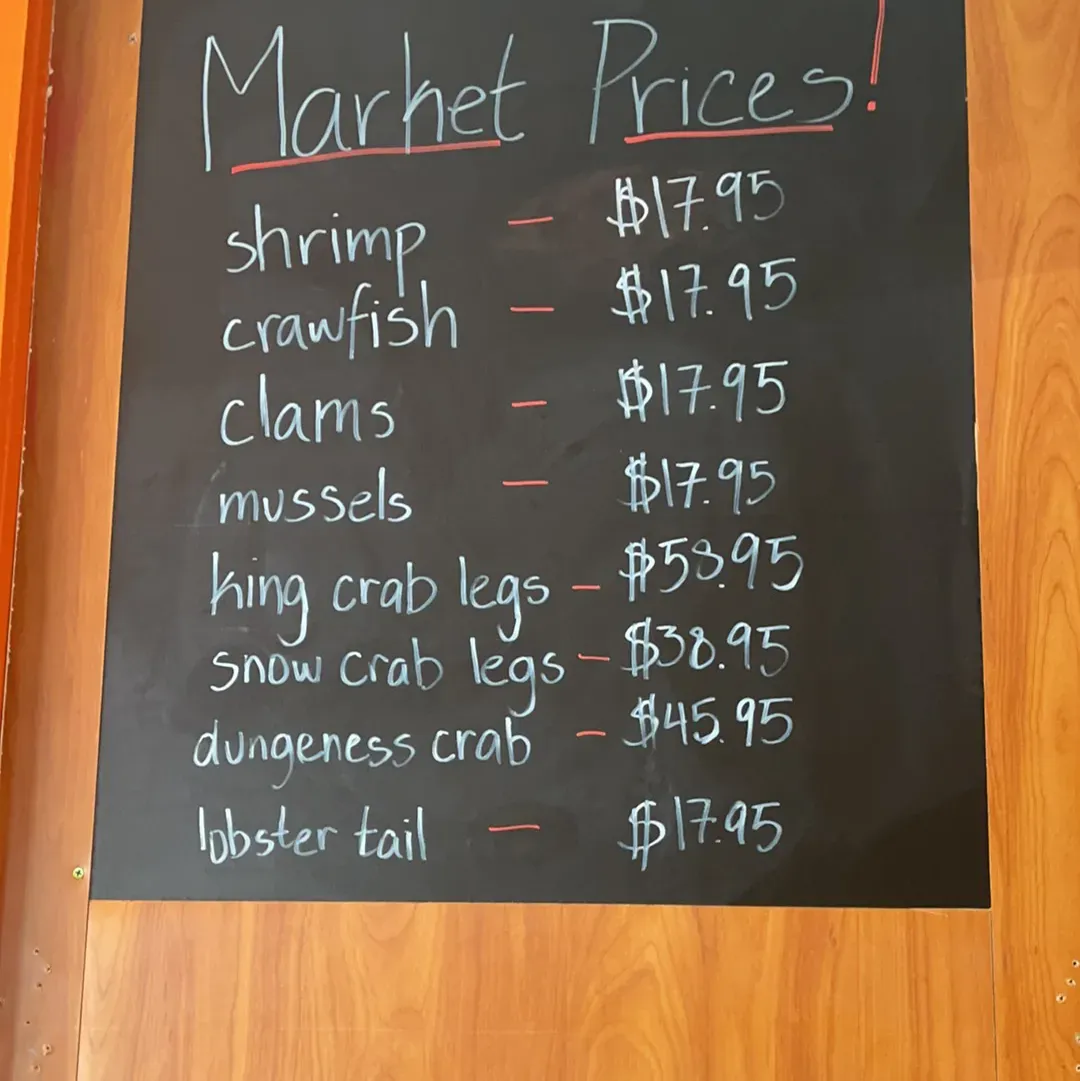 Market Prices!
shrimp - $17.95
crawfish - $17.95
clams - $17.95
mussels - $17.95
king crab legs - $58.95
snow crab legs - $38.95
dungeness crab - $45.95
lobster tail - $17.95